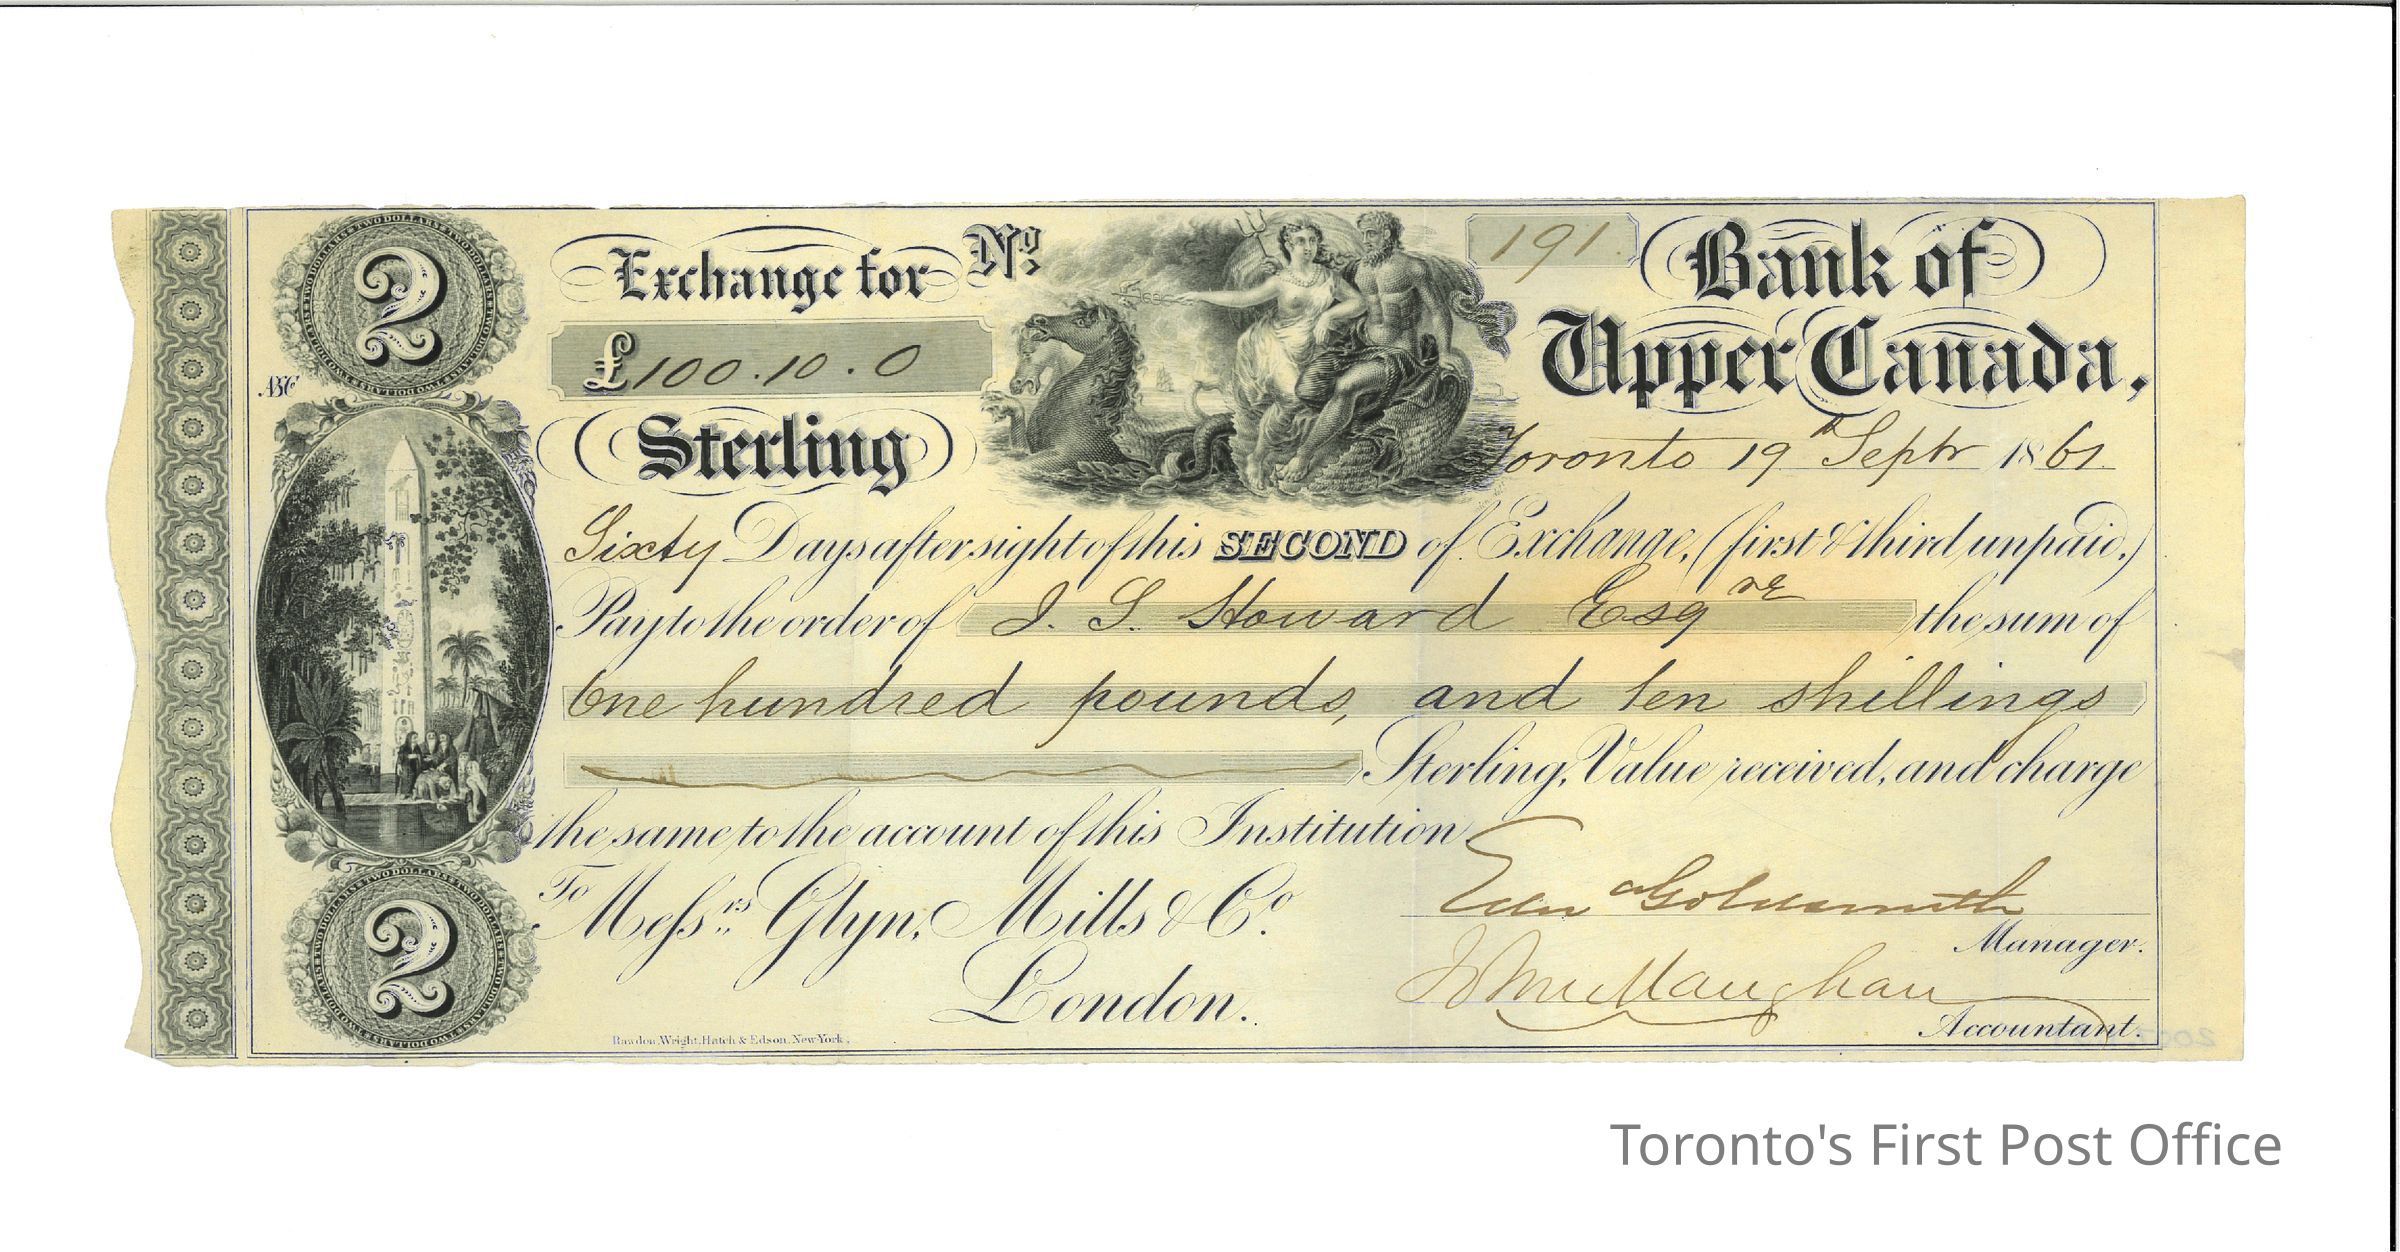 2
TWO DOLLARS
ABC
Exchange for No.
191.
£100.10.0
Sterling
Bank of
Upper Canada,
Toronto 19th Septr 1861
Sixty Days after sight of this SECOND of Exchange, (first & third unpaid,)
Pay to the order of J. S. Howard Esqre the sum of
One hundred pounds, and ten shillings
Sterling, Value received, and charge
the same to the account of this Institution
To Messrs. Glyn, Mills & Co.
London.
Goldsmith
Manager.
Accountant.
2
TWO DOLLARS
Rawdon, Wright, Hatch & Edson, New-York.
Toronto's First Post Office